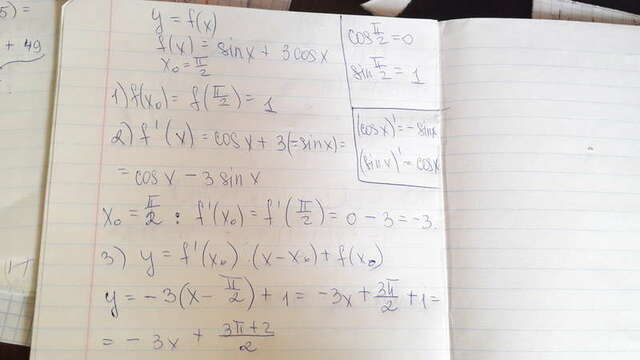 5) =
+ 49
y = f(x)
f(x) = sinx + 3cosx
x₀ = π/2
cos π/2 = 0
sin π/2 = 1
1) f(x₀) = f(π/2) = 1
(cosx)' = -sinx
(sinx)' = cosx
2) f'(x) = cosx + 3(-sinx) =
= cosx - 3sinx
x₀ = π/2 : f'(x₀) = f'(π/2) = 0 - 3 = -3.
3) y = f'(x₀) · (x - x₀) + f(x₀)
y = -3(x - π/2) + 1 = -3x + 3π/2 + 1 =
= -3x + (3π+2)/2